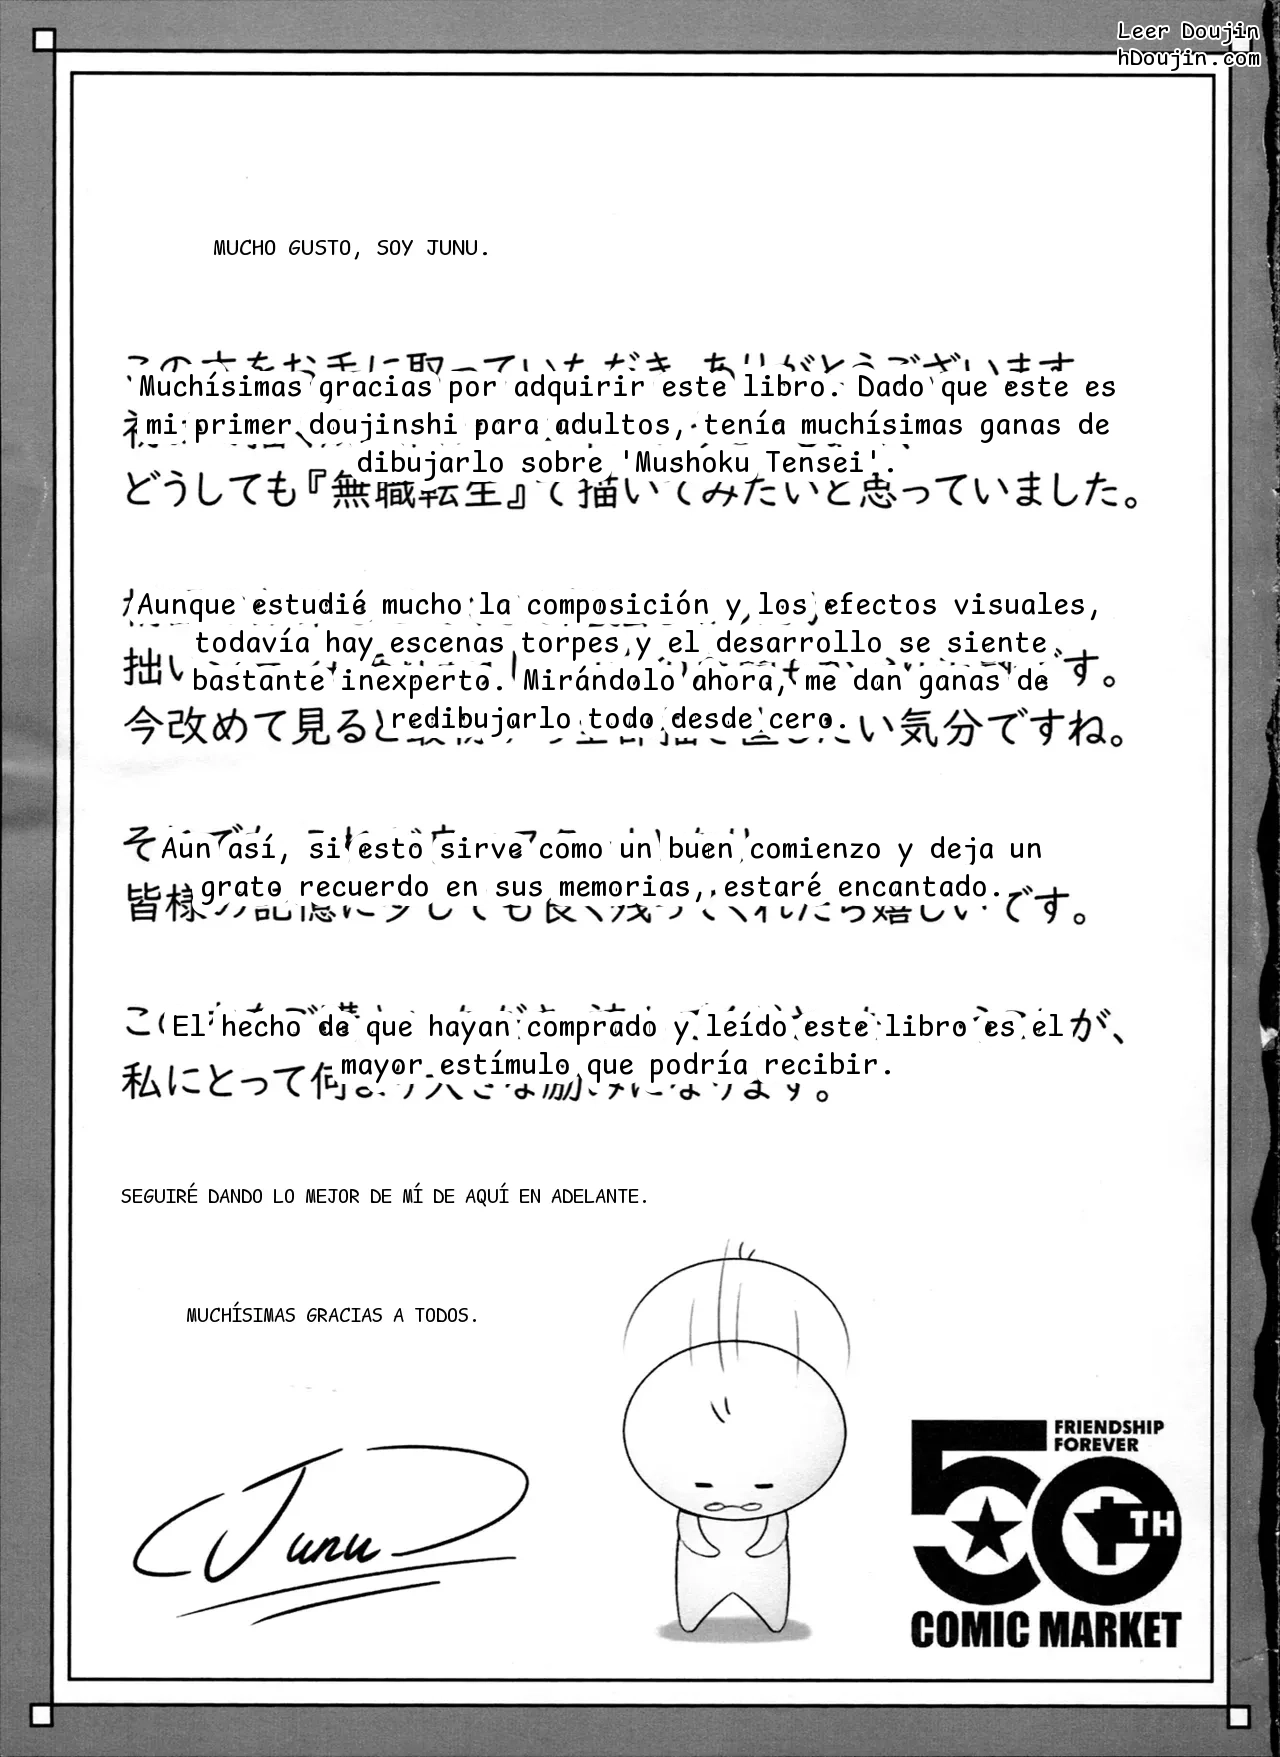 Leer Doujin
hDoujin.com
MUCHO GUSTO, SOY JUNU.
Muchísimas gracias por adquirir este libro. Dado que este es
mi primer doujinshi para adultos, tenía muchísimas ganas de
dibujarlo sobre 'Mushoku Tensei'.
どうしても『無職転生』で描いてみたいと思っていました。
Aunque estudié mucho la composición y los efectos visuales,
todavía hay escenas torpes y el desarrollo se siente
bastante inexperto. Mirándolo ahora, me dan ganas de
redibujarlo todo desde cero.
今改めて見ると
い気分ですね。
Aun así, si esto sirve como un buen comienzo y deja un
grato recuerdo en sus memorias, estaré encantado.
皆様の記憶に少しでも良く残ってくれたら嬉しいです。
El hecho de que hayan comprado y leído este libro es el
が、
mayor estímulo que podría recibir.
私にとって何より大きな励みになります。
SEGUIRÉ DANDO LO MEJOR DE MÍ DE AQUÍ EN ADELANTE.
MUCHÍSIMAS GRACIAS A TODOS.
Junu
FRIENDSHIP
FOREVER
50TH
COMIC MARKET